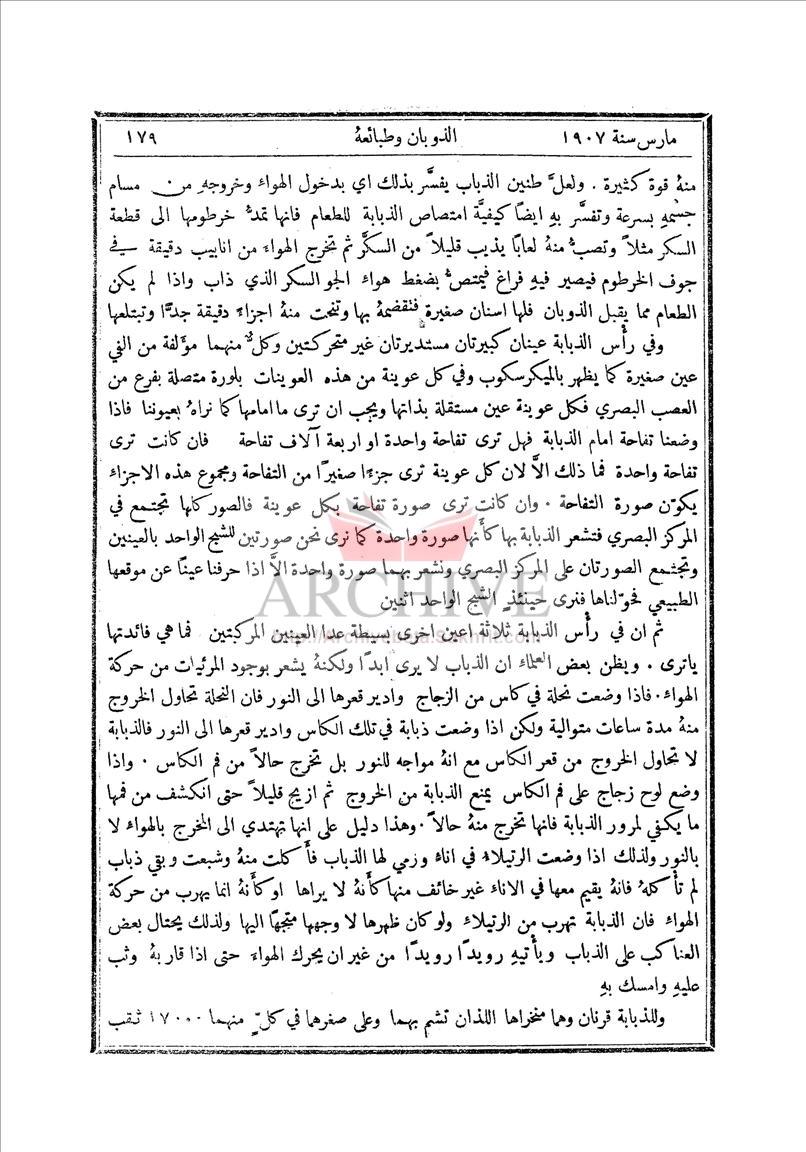 مارس سنة ١٩٠٧ الذوبان وطبائعهُ ١٧٩
منهُ قوة كثيرة . ولعلَّ طنين الذباب يفسَّر بذلك اي بدخول الهواء وخروجهِ من مسام
جسمهِ بسرعة وتفسَّر بهِ ايضاً كيفيَّة امتصاص الذبابة للطعام فانها تمدُّ خرطومها الى قطعة
السكر مثلاً وتصبُّ منهُ لعابا يذيب قليلاً من السكَّر ثم تخرج الهواء من انابيب دقيقة في
جوف الخرطوم فيصير فيهِ فراغ فيمتصُّ بضغط هواء الجو السكر الذي ذاب واذا لم يكن
الطعام مما يقبل الذوبان فلها اسنان صغيرة فتقضمهُ بها وتنحت منهُ اجزاءً دقيقة جدًّا وتبتلعها
وفي رأْس الذبابة عينان كبيرتان مستديرتان غير متحركتين وكلٌّ منهما مؤلفة من الفي
عين صغيرة كما يظهر بالميكرسكوب وفي كل عوينة من هذه العوينات بلورة متصلة بفرع من
العصب البصري فكل عوينة عين مستقلة بذاتها ويجب ان ترى ما امامها كما نراهُ بعيوننا فاذا
وضعنا تفاحة امام الذبابة فهل ترى تفاحة واحدة او اربعة آلاف تفاحة فان كانت ترى
تفاحة واحدة فما ذلك الاَّ لان كل عوينة ترى جزءًا صغيرًا من التفاحة ومجموع هذه الاجزاء
يكوّن صورة التفاحة . وان كانت ترى صورة تفاحة بكل عوينة فالصور كلها تجتمع في
المركز البصري فتشعر الذبابة بها كأَنها صورة واحدة كما نرى نحن صورتين للشبح الواحد بالعينين
وتجتمع الصورتان على المركز البصري ونشعر بهما صورة واحدة الاَّ اذا حرفنا عينًا عن موقعها
الطبيعي فحوّلناها فنرى حينئذٍ الشبح الواحد اثنين
ARCHIVE
ثم ان في رأْس الذبابة ثلاثة اعين اخرى بسيطة عدا العينين المركبتين فما هي فائدتها
ياترى . ويظن بعض العلماء ان الذباب لا يرى ابدًا ولكنهُ يشعر بوجود المرئيات من حركة
الهواء . فاذا وضعت نحلة في كاس من الزجاج وادير قعرها الى النور فان النحلة تحاول الخروج
منهُ مدة ساعات متوالية ولكن اذا وضعت ذبابة في تلك الكاس وادير قعرها الى النور فالذبابة
لا تحاول الخروج من قعر الكاس مع انهُ مواجه للنور بل تخرج حالاً من فم الكاس . واذا
وضع لوح زجاج على فم الكاس يمنع الذبابة من الخروج ثم ازيح قليلاً حتى انكشف من فمها
ما يكفي لمرور الذبابة فانها تخرج منهُ حالاً . وهذا دليل على انها تهتدي الى المخرج بالهواء لا
بالنور ولذلك اذا وضعت الرتيلاء في اناء ورمي لها الذباب فأَكلت منهُ وشبعت وبقي ذباب
لم تأْكلهُ فانهُ يقيم معها في الاناء غير خائف منها كأَنهُ لا يراها او كأَنهُ انما يهرب من حركة
الهواء فان الذبابة تهرب من الرتيلاء ولو كان ظهرها لا وجهها متجهًا اليها ولذلك يحتال بعض
العناكب على الذباب ويأْتيهِ رويدًا رويدًا من غير ان يحرك الهواء حتى اذا قاربهُ وثب
عليهِ وامسك بهِ
وللذبابة قرنان وهما منخراها اللذان تشم بهما وعلى صغرهما في كلٍّ منهما ١٧٠٠٠ ثقب